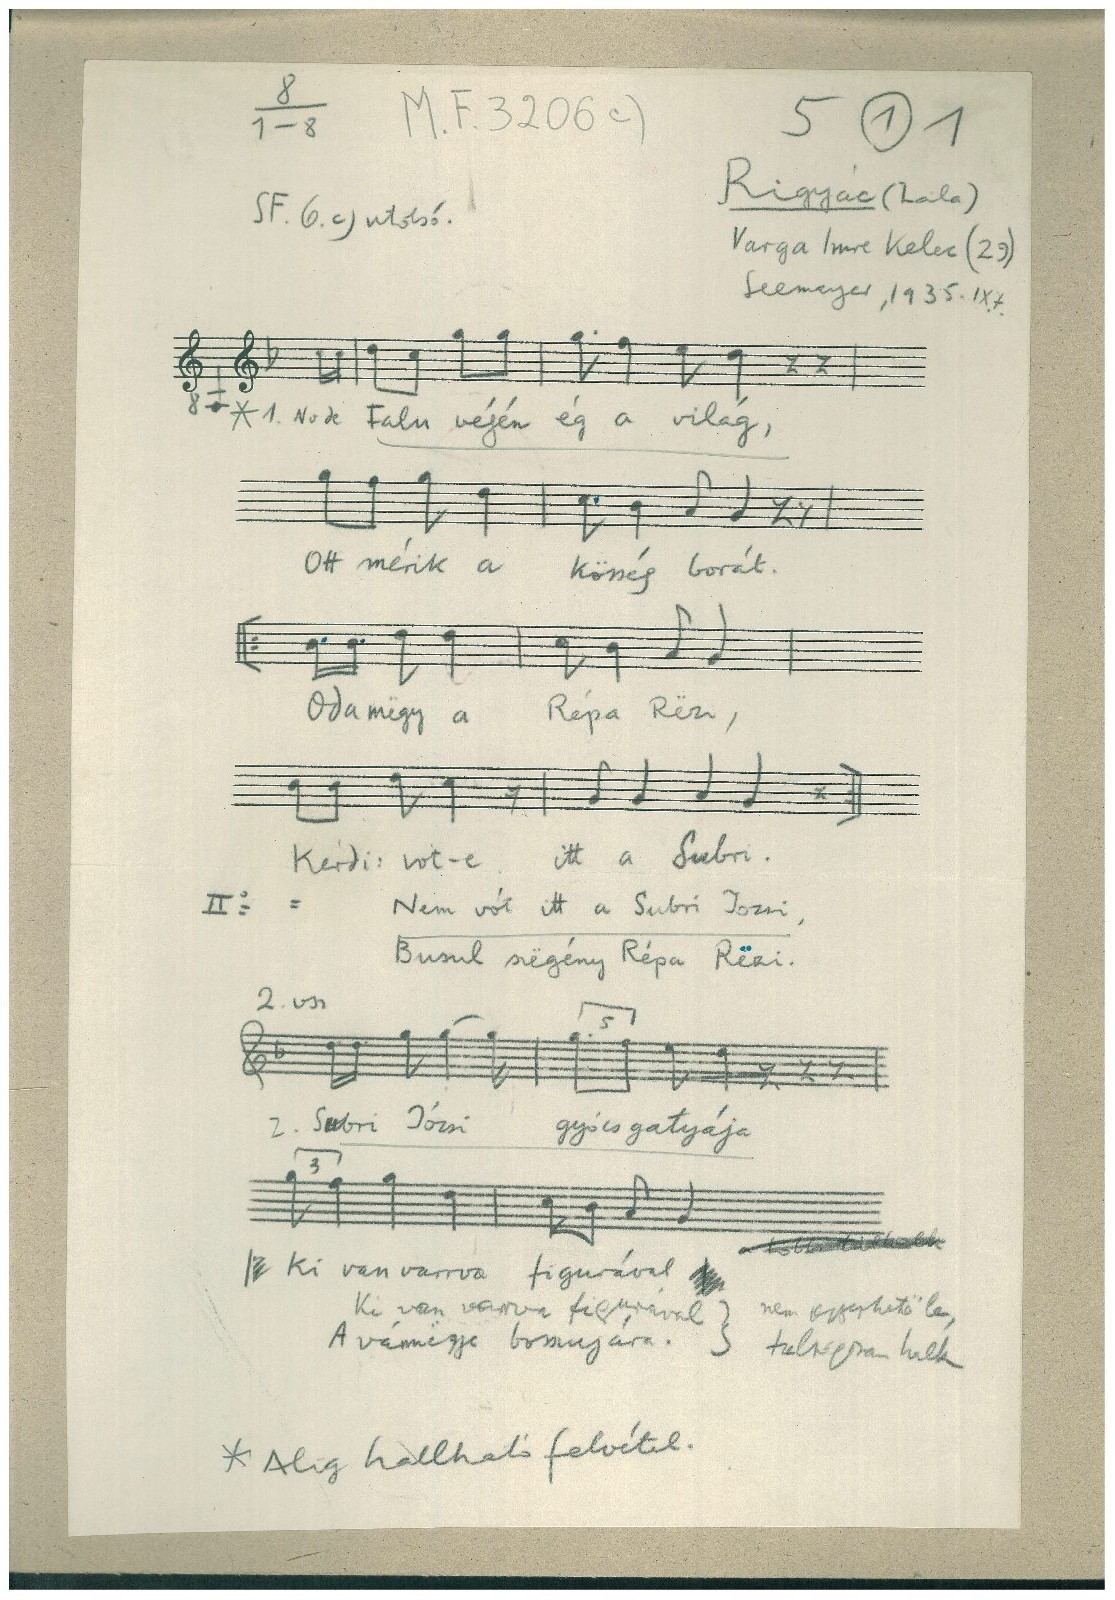 8
1-8
M.F. 3206 c)
5 ① 1
SF. 6. c) utolsó.
Rigyác (Zala)
Varga Imre Kelec (29)
Seemayer, 1935. IX.7.
8
* 1. No de Falu végén ég a világ,
Ott mérik a község borát.
Oda mëgy a Répa Rëzi,
Kérdi: vót-e itt a Subri.
II: = Nem vót itt a Subri Jozsi,
Busul szëgény Répa Rëzi.
2. vsz
5
2. Subri Józsi gyócsgatyája
3
Ki van varrva figurával
Ki van varrva figurával } nem jegyezhető le,
A vármëgye bosszujára. } tulságosan halk
* Alig hallható felvétel.